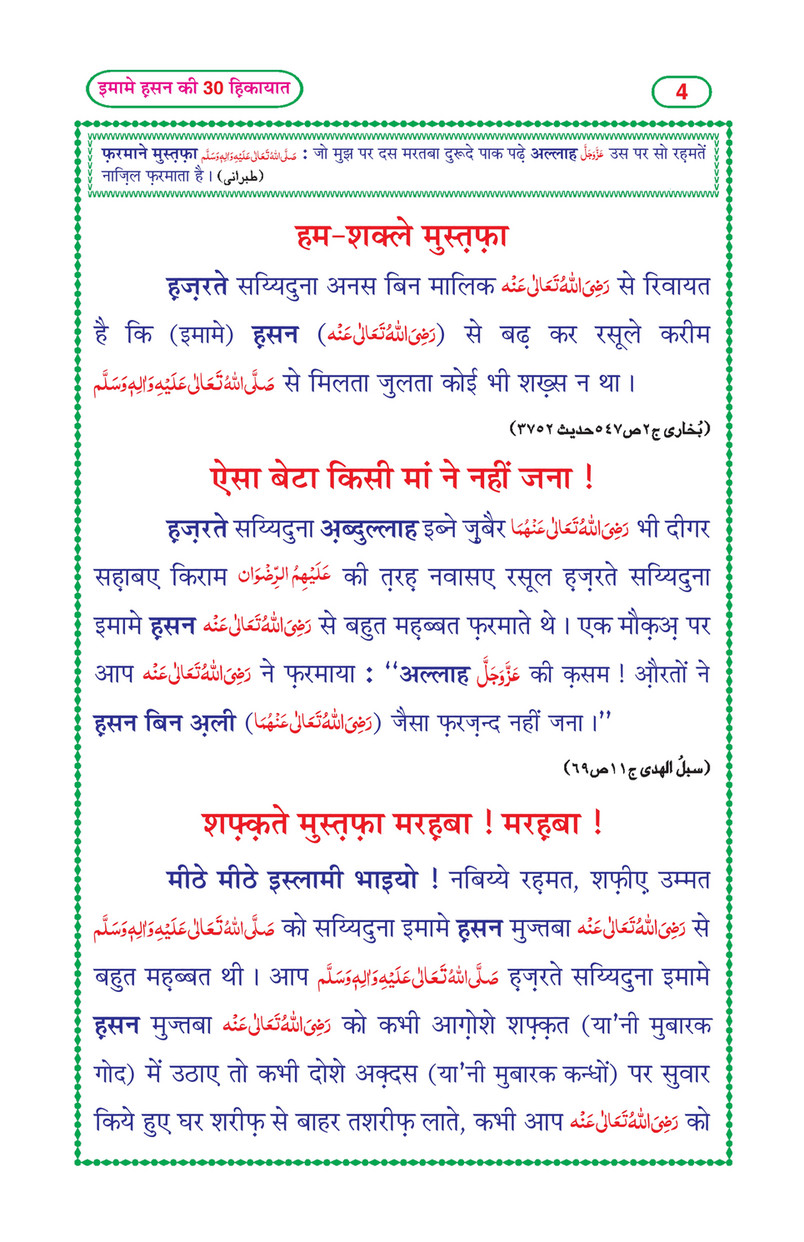 इमामे ह़सन की 30 ह़िकायात
4
फ़रमाने मुस्त़फ़ा صَلَّى اللهُ تَعَالٰى عَلَيْهِ وَاٰلِهٖ وَسَلَّم : जो मुझ पर दस मरतबा दुरूदे पाक पढ़े अल्लाह عَزَّوَجَلَّ उस पर सो रह़मतें
नाज़िल फ़रमाता है । (طبرانی)
हम-शक्ले मुस्त़फ़ा
ह़ज़रते सय्यिदुना अनस बिन मालिक رَضِىَ اللهُ تَعَالٰى عَنْه से रिवायत
है कि (इमामे) ह़सन (رَضِىَ اللهُ تَعَالٰى عَنْه) से बढ़ कर रसूले करीम
صَلَّى اللهُ تَعَالٰى عَلَيْهِ وَاٰلِهٖ وَسَلَّم से मिलता जुलता कोई भी शख़्स न था ।
(بُخاری ج٢ ص٥٤٧ حدیث ٣٧٥٢)
ऐसा बेटा किसी मां ने नहीं जना !
ह़ज़रते सय्यिदुना अ़ब्दुल्लाह इब्ने ज़ुबैर رَضِىَ اللهُ تَعَالٰى عَنْهُمَا भी दीगर
सह़ाबए किराम عَلَيْهِمُ الرِّضْوَان की त़रह़ नवासए रसूल ह़ज़रते सय्यिदुना
इमामे ह़सन رَضِىَ اللهُ تَعَالٰى عَنْه से बहुत मह़ब्बत फ़रमाते थे । एक मौक़अ़ पर
आप رَضِىَ اللهُ تَعَالٰى عَنْه ने फ़रमाया : ‘‘अल्लाह عَزَّوَجَلَّ की क़सम ! औ़रतों ने
ह़सन बिन अ़ली (رَضِىَ اللهُ تَعَالٰى عَنْهُمَا) जैसा फ़रज़न्द नहीं जना ।’’
(سبلُ الهدى ج١١ ص٦٩)
शफ़्क़ते मुस्त़फ़ा मरह़बा ! मरह़बा !
मीठे मीठे इस्लामी भाइयो ! नबिय्ये रह़मत, शफ़ीए उम्मत
صَلَّى اللهُ تَعَالٰى عَلَيْهِ وَاٰلِهٖ وَسَلَّم को सय्यिदुना इमामे ह़सन मुज्तबा رَضِىَ اللهُ تَعَالٰى عَنْه से
बहुत मह़ब्बत थी । आप صَلَّى اللهُ تَعَالٰى عَلَيْهِ وَاٰلِهٖ وَسَلَّم ह़ज़रते सय्यिदुना इमामे
ह़सन मुज्तबा رَضِىَ اللهُ تَعَالٰى عَنْه को कभी आग़ोशे शफ़्क़त (या’नी मुबारक
गोद) में उठाए तो कभी दोशे अक़्दस (या’नी मुबारक कन्धों) पर सुवार
किये हुए घर शरीफ़ से बाहर तशरीफ़ लाते, कभी आप رَضِىَ اللهُ تَعَالٰى عَنْه को